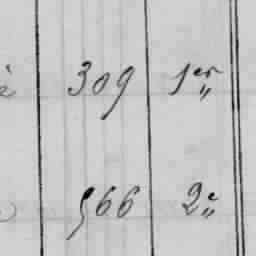 309 1er
566 2e